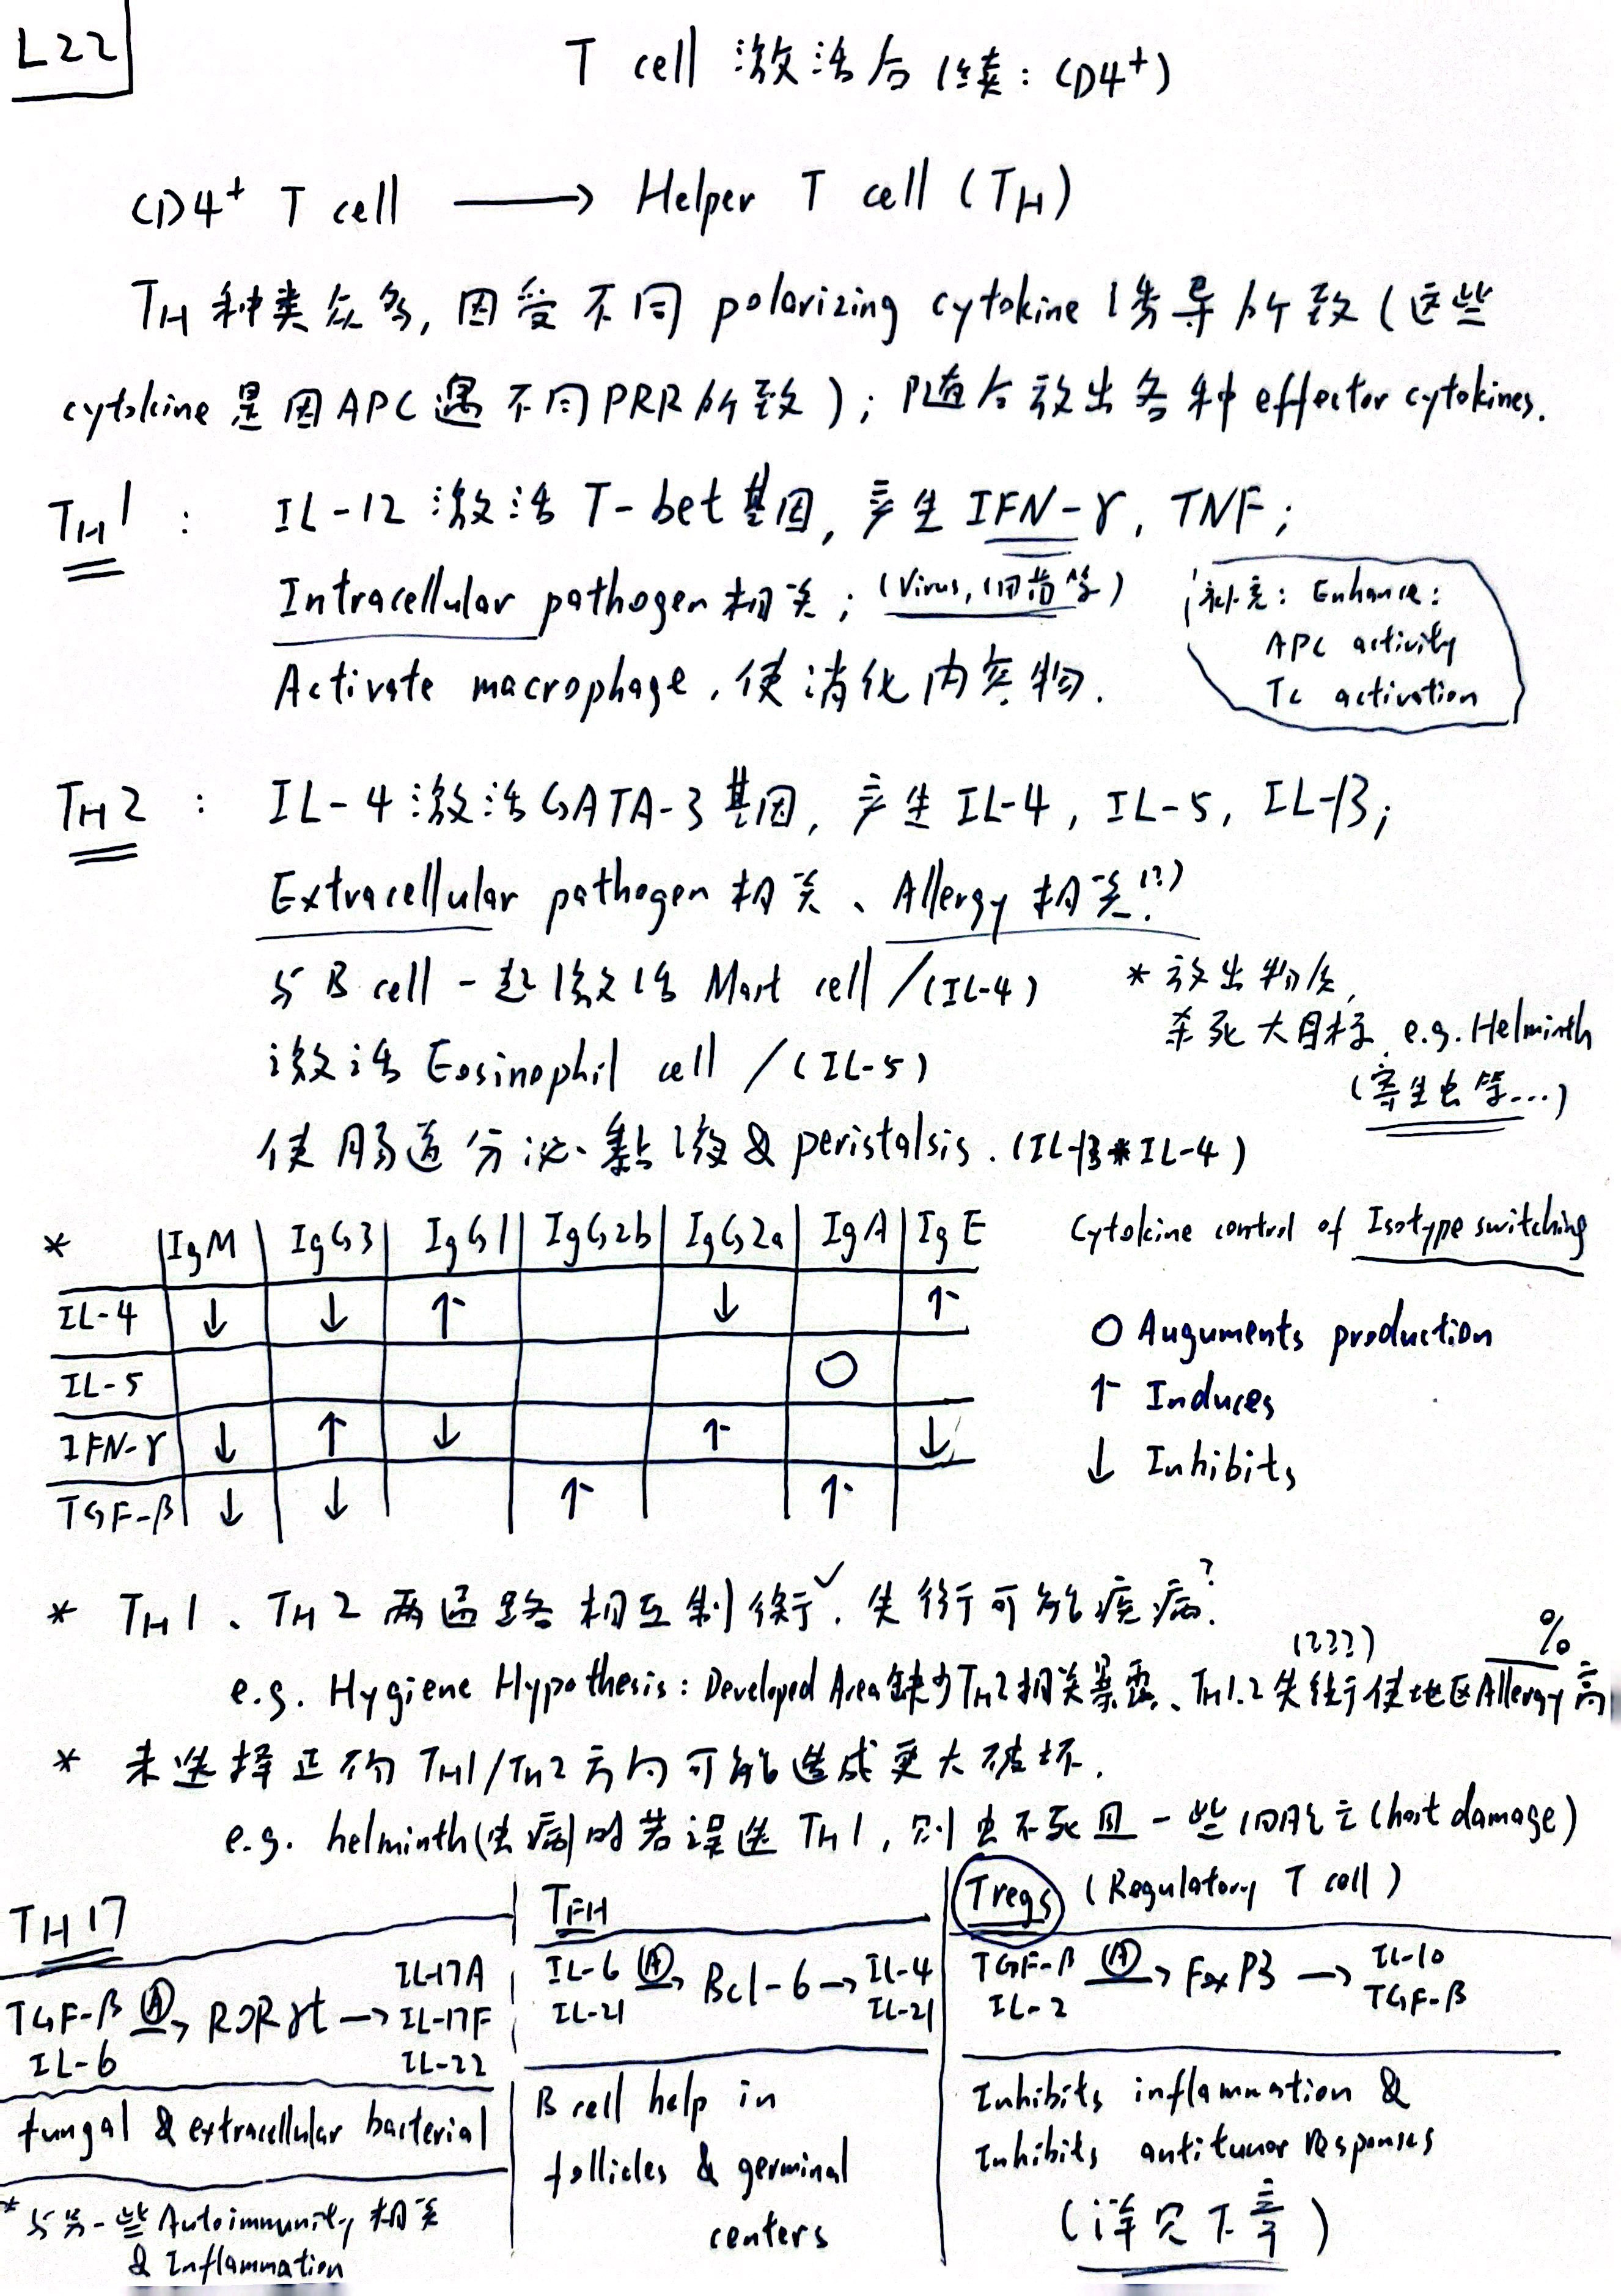 L22
T cell 激活后续: CD4⁺)
CD4⁺ T cell ⟶ Helper T cell (TH)
TH 种类众多, 因受不同 polarizing cytokine 诱导所致 (这些
cytokine 是因 APC 遇不同 PRR 所致); 随后放出各种 effector cytokines.
TH1 : IL-12 激活 T-bet 基因, 产生 IFN-γ, TNF;
Intracellular pathogen 相关; (Virus, 细菌等)
Activate macrophage, 使消化内容物.
补充: Enhance:
APC activity
Tc activation
TH2 : IL-4 激活 GATA-3 基因, 产生 IL-4, IL-5, IL-13;
Extracellular pathogen 相关、Allergy 相关!?)
与 B cell 一起激活 Mast cell /(IL-4)
激活 Eosinophil cell /(IL-5)
使肠道分泌黏液 & peristalsis. (IL-13 * IL-4)
* 放出物质,
杀死大目标, e.g. Helminth
(寄生虫等...)
* IgM IgG3 IgG1 IgG2b IgG2a IgA IgE
IL-4 ↓ ↓ ↑ ↓ ↑
IL-5 O
IFN-γ ↓ ↑ ↓ ↑ ↓
TGF-β ↓ ↓ ↑ ↑
Cytokine control of Isotype switching
O Auguments production
↑ Induces
↓ Inhibits
* TH1、TH2 两通路相互制衡✓. 失衡可能疾病?
e.g. Hygiene Hypothesis: Developed Area 缺少 TH2 相关暴露、TH1.2 失衡使地区 Allergy 高
(???) %
* 未选择正确 TH1/TH2 方向可能造成更大破坏.
e.g. helminth (虫病) 时若误选 TH1, 则虫不死且一些细胞亡 (host damage)
TH17
TGF-β IL-6 Ⓐ→ RORγt → IL-17A IL-17F IL-22
fungal & extracellular bacterial
* 与另一些 Autoimmunity 相关
& Inflammation
TFH
IL-6 IL-21 Ⓐ→ Bcl-6 → IL-4 IL-21
B cell help in
follicles & germinal
centers
Tregs (Regulatory T cell)
TGF-β IL-2 Ⓐ→ FoxP3 → IL-10 TGF-β
Inhibits inflammation &
Inhibits antitumor responses
(详见下章)